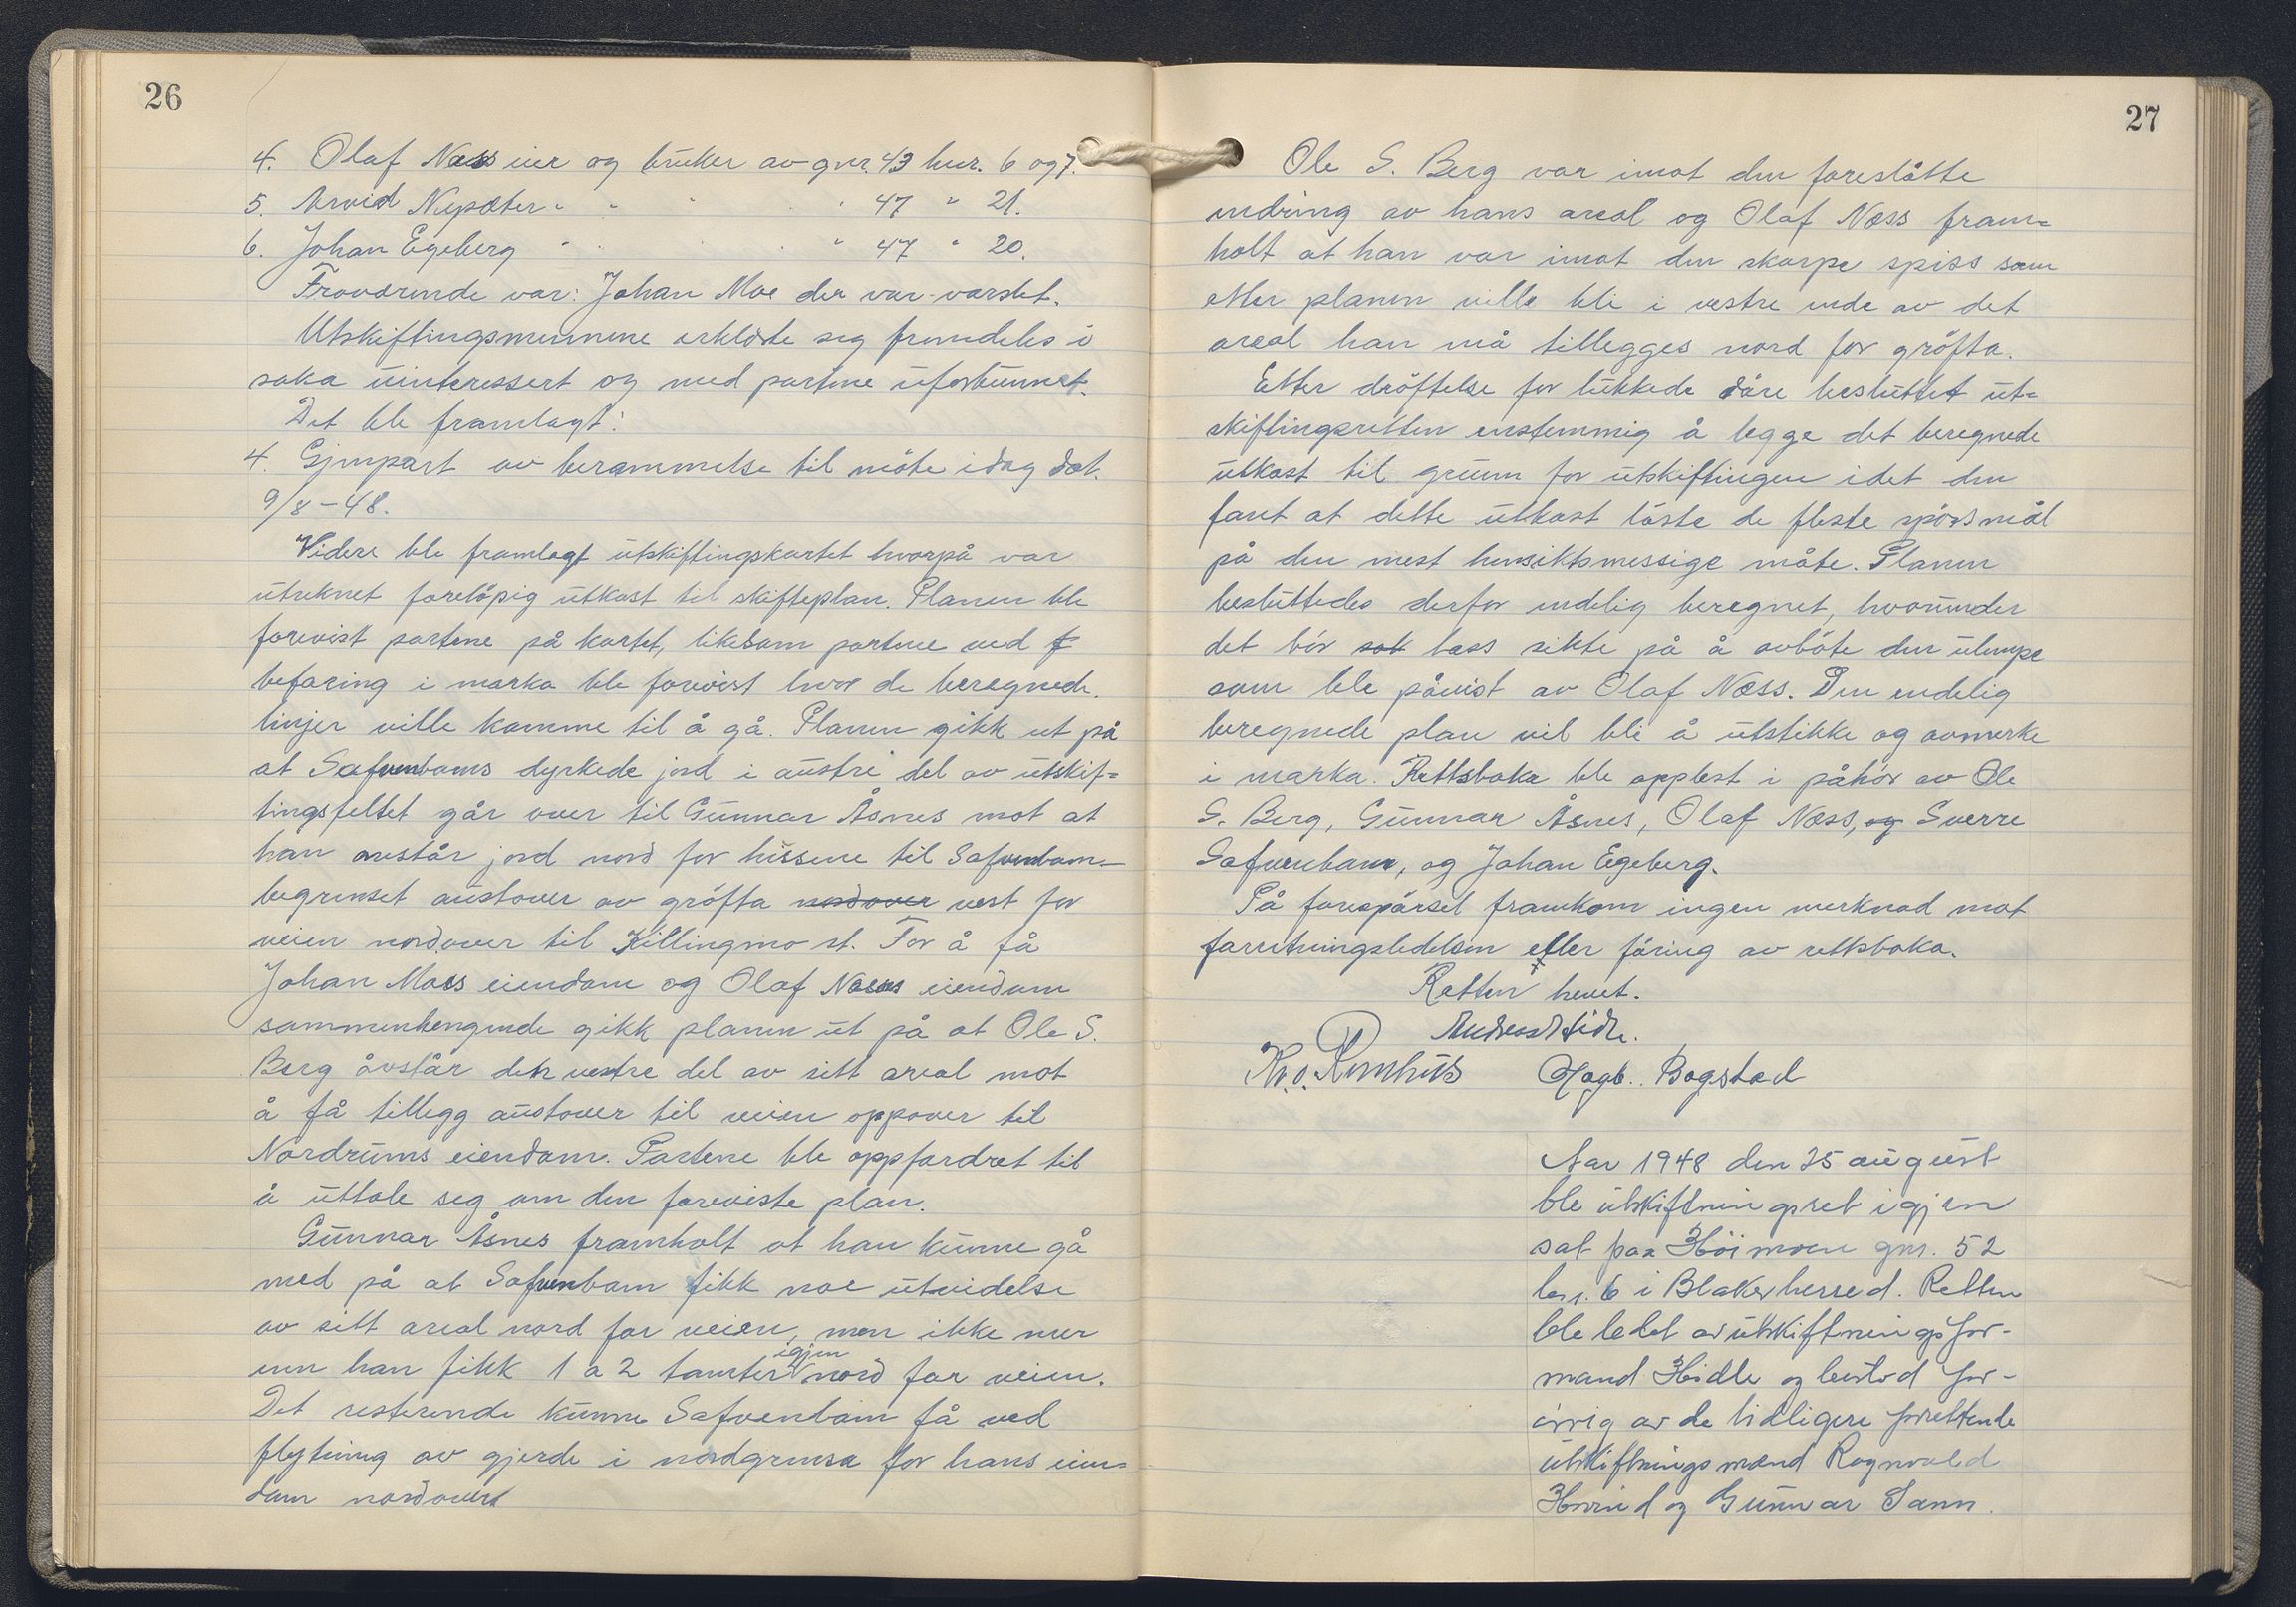 26
4. Olaf Næss eier og bruker av gnr. 43 bnr. 6 og 7.
5. Arvid Nepæter " " " " " 47 " 21.
6. Johan Egeberg " " " " " 47 " 20.
Fraværende var: Johan Moe der var varslet.
Utskiftingsmennene erklærte seg fremdeles i
saka uinteressert og med partene uforbunnet.
Det ble framlagt:
4. Gjenpart av berammelse til möte idag dat.
9/8-48.
Videre ble framlagt utskiftingskartet hvorpå var
utreknet forelöpig utkast til skifteplan. Planen ble
forevist partene på kartet, likesom partene ved
befaring i marka ble forevist hvor de beregnede
linjer ville komme til å gå. Planen gikk ut på
at Safvenboms dyrkede jord i austre del av utskif=
tingsfeltet går over til Gunnar Åsnes mot at
han avstår jord nord for hussene til Safvenbom
begrenset austover av gröfta nordover vest for
veien nordover til Killingmo st. For å få
Johan Moes eiendom og Olaf Næss eiendom
sammenhengende gikk planen ut på at Ole S.
Berg avstår den vestre del av sitt areal mot
å få tillegg austover til veien oppover til
Nordrums eiendom. Partene ble oppfordret til
å uttale seg om den foreviste plan.
Gunnar Åsnes framholt at han kunne gå
med på at Safvenbom fikk noe utvidelse
av sitt areal nord for veien, men ikke mer
enn han fikk 1 a 2 tomter igjen nord for veien.
Det resterende kunne Safvenbom få ved
flytning av gjerde i nordgrensa for hans eien=
dom nordover
27
Ole S. Berg var imot den foreslåtte
endring av hans areal og Olaf Næss fram=
holt at han var imot den skarpe spiss som
etter planen ville bli i vestre ende av det
areal han må tillegges nord for gröfta.
Etter dröftelse for lukkede döre besluttet ut=
skiftingsretten enstemmig å legge det beregnede
utkast til grunn for utskiftingen idet den
fant at dette utkast löste de fleste spörsmål
på den mest hensiktsmessige måte. Planen
besluttedes derfor endelig beregnet, hvorunder
det bör sat tass sikte på å avböte den ulempe
som ble påvist av Olaf Næss. Den endelig
beregnede plan vil bli å utstikke og avmerke
i marka. Rettsboka ble opplest i påhör av Ole
S. Berg, Gunnar Åsnes, Olaf Næss, og Sverre
Safvenbom, og Johan Egeberg.
På forespörsel framkom ingen merknad mot
forretningsledelsen eller föring av rettsboka.
Retten hevet.
Andreas Hidle.
Kr. O. Romhus Hagb. Bogstad
Aar 1948 den 25 august
ble utskiftningsret igjen
sat paa Höimoen gnr. 52
bnr. 6 i Blaker herred. Retten
ble ledet av utskiftningsfor-
mand Hidle og bestod for-
övrig av de tidligere forrettende
utskiftningsmænd Rognvald
og Gunnar